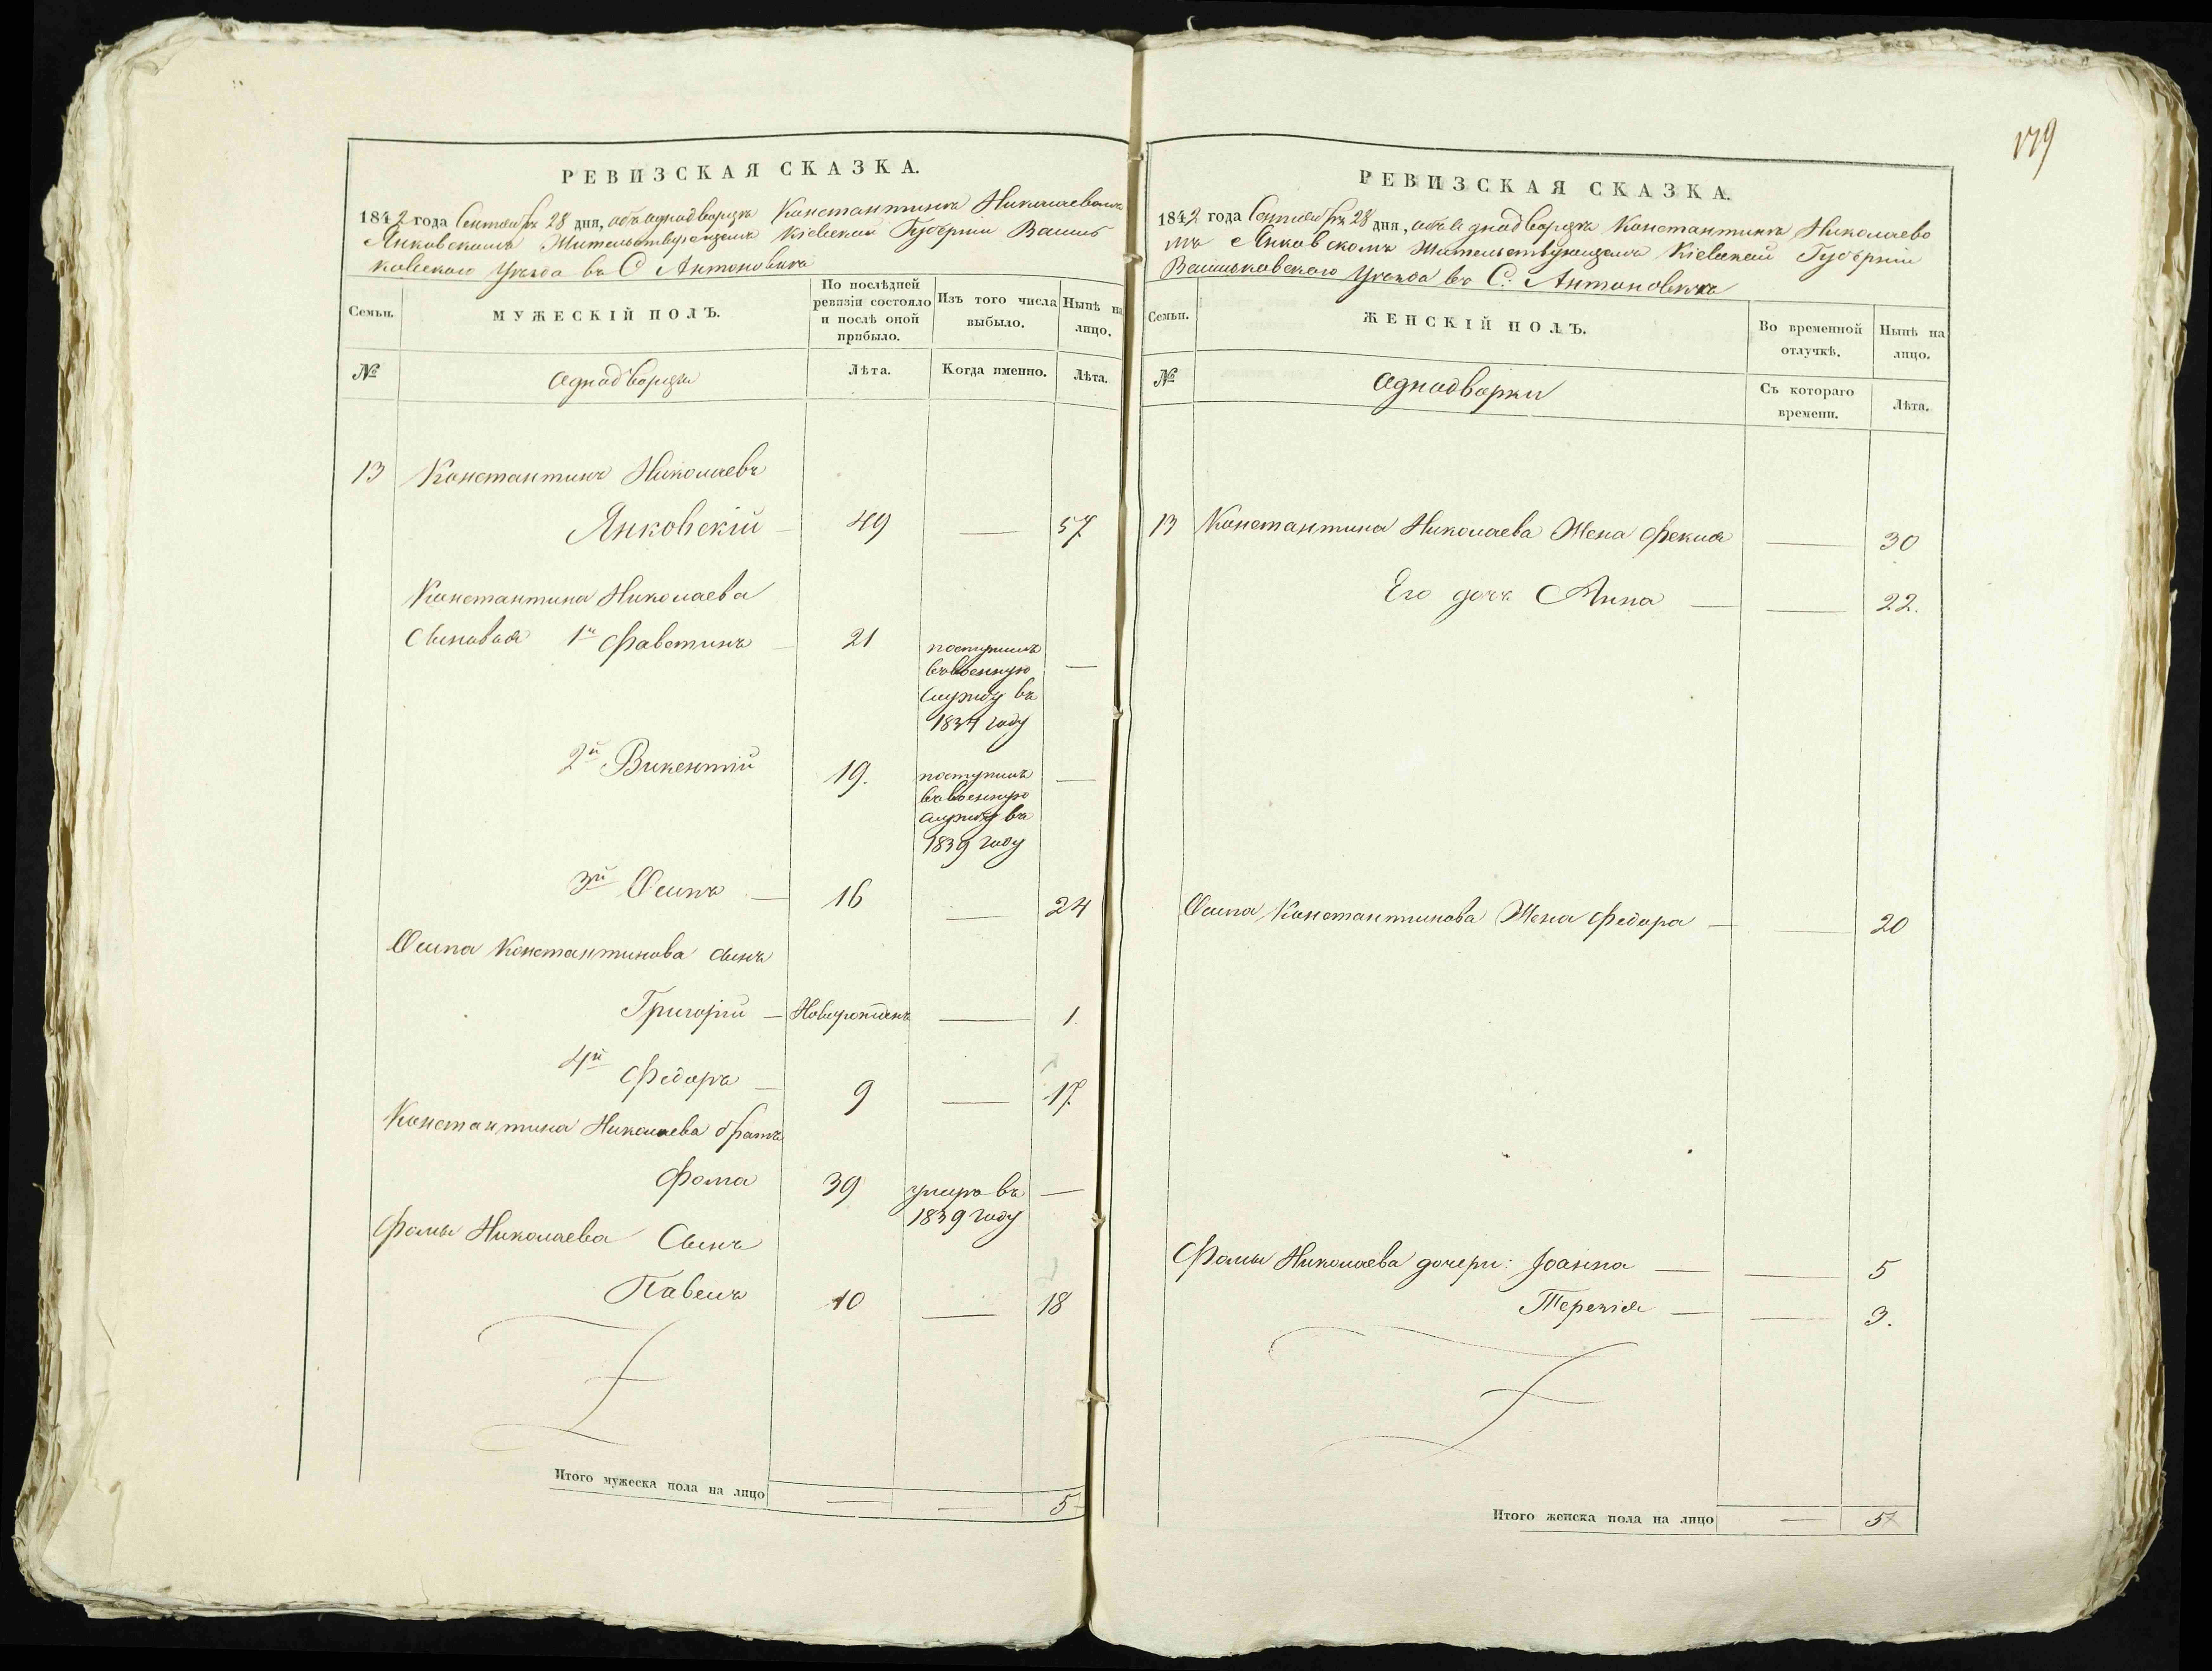 РЕВИЗСКАЯ СКАЗКА.
1842 года Сентября 28 дня, объ однодворцѣ Константинѣ Николаевомъ
Янковскомъ Жительствующемъ Кіевской Губерніи Василь
ковскаго уѣзда въ С Антоновкѣ
Семьи.
МУЖЕСКІЙ ПОЛЪ.
По послѣдней
ревизіи состояло
и послѣ оной
прибыло.
Изъ того числа
выбыло.
Нынѣ на
лицо.
№
Однодворцы
Лѣта.
Когда именно.
Лѣта.
13 Константинъ Николаевъ
Янковскій — 49 — 57
Константина Николаева
сыновья 1й Фавстинъ — 21 поступилъ —
въ военную
службу въ
1834 году
2й Викентій 19. поступилъ —
въ военную
службу въ
1839 году
3й Осипъ — 16 — 24
Осипа Константинова сынъ
Григорій — Новорожденъ — 1.
4й Федоръ — 9 — 17.
Константина Николаева братъ
Фома 39 умеръ въ —
1839 году
Фомы Николаева Сынъ
Павелъ 10 — 18
Итого мужеска пола на лицо — — 5
179
РЕВИЗСКАЯ СКАЗКА.
1842 года Сентября 28 дня, объ однодворцѣ Константинѣ Николаево
мъ Янковскомъ Жительствующемъ Кіевской Губерніи
Васильковскаго уѣзда въ С. Антоновкѣ
Семьи.
ЖЕНСКІЙ ПОЛЪ.
Во временной
отлучкѣ.
Нынѣ на
лицо.
№
Однодворки
Съ котораго
времени.
Лѣта.
13 Константина Николаева Жена Фекла — 30
Его дочь Анна — — 22.
Осипа Константинова Жена Федора — — 20
Фомы Николаева дочери: Іоанна — — 5
Терезія — — 3.
Итого женска пола на лицо — 5